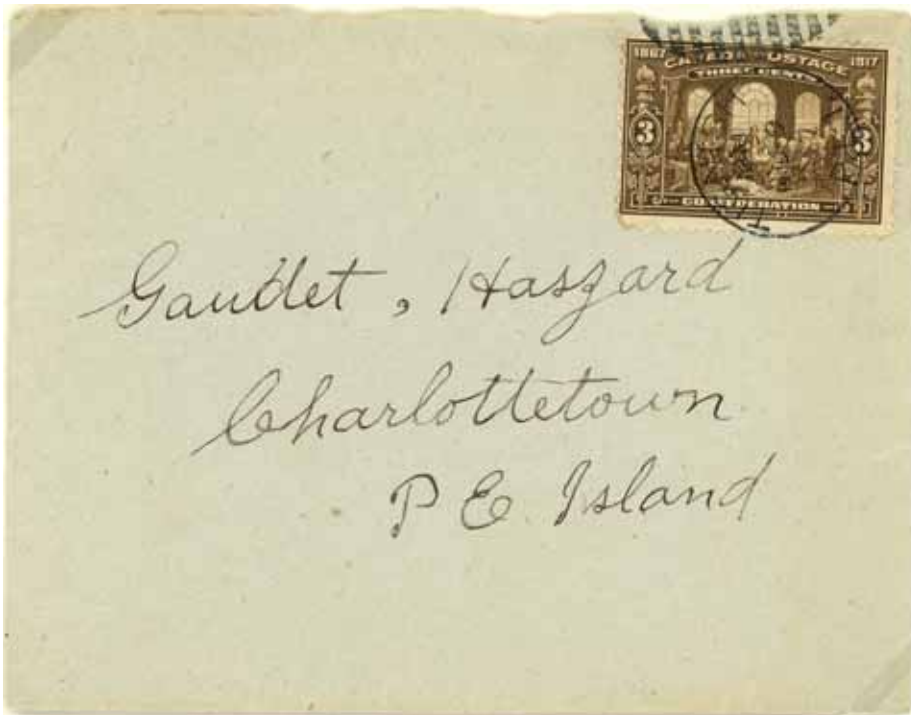 1867 CANADA POSTAGE 1917
THREE CENTS
3 3
CONFEDERATION
Gaudet, Haszard
Charlottetown
P E. Island